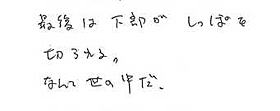 最後は下部がしっぽを
切られる。
なんて世の中だ。